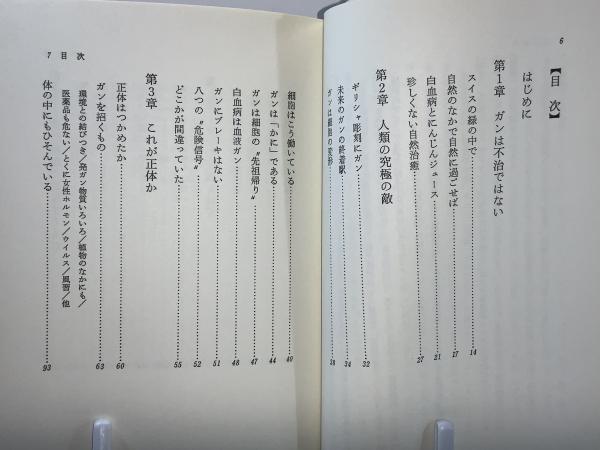 6
【目　次】
はじめに
第1章　ガンは不治ではない
スイスの緑の中で……14
自然のなかで自然に過ごせば……17
白血病とにんじんジュース……21
珍しくない自然治癒……27
第2章　人類の究極の敵
ギリシャ彫刻にガン……32
未来のガンの終着駅……34
ガンは細胞の変形……38
7　目　次
細胞はこう働いている……40
ガンは「かに」である……44
ガンは細胞の〝先祖帰り〟……47
白血病は血液ガン……48
ガンにブレーキはない……51
八つの〝危険信号〟……52
どこかが間違っていた……55
第3章　これが正体か
正体はつかめたか……60
ガンを招くもの……63
環境との結びつき／発ガン物質いろいろ／植物のなかにも／
医薬品も危ない／とくに女性ホルモン／ウイルス／風習／他
体の中にもひそんでいる……93